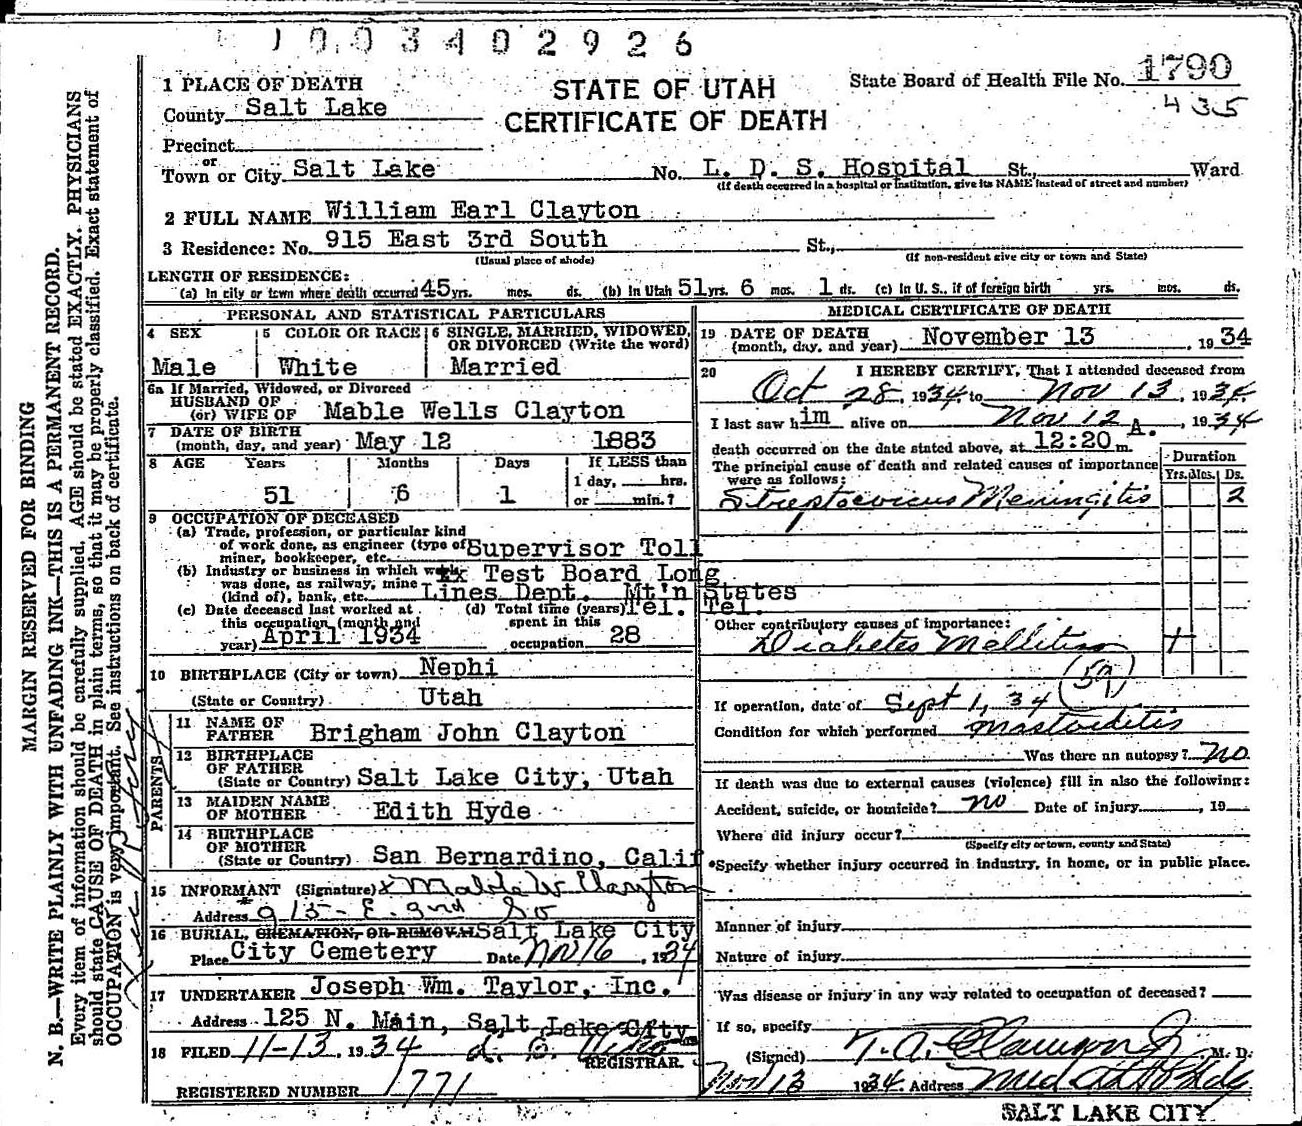 1003402926
1 PLACE OF DEATH
County Salt Lake
Precinct
or
Town or City Salt Lake
STATE OF UTAH
CERTIFICATE OF DEATH
State Board of Health File No. 1790
435
No. L. D. S. Hospital St., Ward
(If death occurred in a hospital or institution, give its NAME instead of street and number)
2 FULL NAME William Earl Clayton
3 Residence: No. 915 East 3rd South St.,
(Usual place of abode) (If non-resident give city or town and State)
LENGTH OF RESIDENCE:
(a) In city or town where death occurred 45 yrs. mos. ds. (b) In Utah 51 yrs. 6 mos. 1 ds. (c) In U. S., if of foreign birth yrs. mos. ds.
PERSONAL AND STATISTICAL PARTICULARS
4 SEX
Male
5 COLOR OR RACE
White
6 SINGLE, MARRIED, WIDOWED,
OR DIVORCED (Write the word)
Married
6a If Married, Widowed, or Divorced
HUSBAND OF
(or) WIFE OF Mable Wells Clayton
7 DATE OF BIRTH
(month, day, and year) May 12 1883
8 AGE Years Months Days If LESS than
1 day, hrs.
51 6 1 or min.?
9 OCCUPATION OF DECEASED
(a) Trade, profession, or particular kind
of work done, as engineer (type of Supervisor Toll
miner, bookkeeper, etc.
(b) Industry or business in which work Test Board Long
was done, as railway, mine
(kind of), bank, etc. Lines Dept. Mt'n States
Tel. Tel.
(c) Date deceased last worked at
this occupation (month and
year) April 1934
(d) Total time (years)
spent in this
occupation 28
10 BIRTHPLACE (City or town) Nephi
(State or Country) Utah
PARENTS
11 NAME OF
FATHER Brigham John Clayton
12 BIRTHPLACE
OF FATHER
(State or Country) Salt Lake City, Utah
13 MAIDEN NAME
OF MOTHER Edith Hyde
14 BIRTHPLACE
OF MOTHER
(State or Country) San Bernardino, Calif
15 INFORMANT (Signature) x Mable W Clayton
Address 915 - E. 3rd So
16 BURIAL, CREMATION, OR REMOVAL Salt Lake City
Place City Cemetery Date Nov 16, 1934
17 UNDERTAKER Joseph Wm. Taylor, Inc.
Address 125 N. Main, Salt Lake City
18 FILED 11-13, 1934
REGISTRAR.
REGISTERED NUMBER 1771
MEDICAL CERTIFICATE OF DEATH
19 DATE OF DEATH
(month, day, and year) November 13, 1934
20 I HEREBY CERTIFY, That I attended deceased from
Oct 28, 1934, to Nov 13, 1934
I last saw him alive on Nov 12, 1934
death occurred on the date stated above, at 12:20 A. m.
The principal cause of death and related causes of importance
were as follows:
Duration
Yrs. Mos. Ds.
Streptococcus Meningitis 2
Other contributory causes of importance:
Diabetes Mellitus +
(59)
If operation, date of Sept 1, 34
Condition for which performed mastoiditis
Was there an autopsy? no
If death was due to external causes (violence) fill in also the following:
Accident, suicide, or homicide? no Date of injury , 19
Where did injury occur?
(Specify city or town, county and State)
Specify whether injury occurred in industry, in home, or in public place.
Manner of injury
Nature of injury
Was disease or injury in any way related to occupation of deceased?
If so, specify
(Signed) T. A. Clawson Jr, M. D.
Nov 13 1934. Address Med Arts Bldg
SALT LAKE CITY
MARGIN RESERVED FOR BINDING
N. B.—WRITE PLAINLY WITH UNFADING INK—THIS IS A PERMANENT RECORD.
Every item of information should be carefully supplied. AGE should be stated EXACTLY. PHYSICIANS
should state CAUSE OF DEATH in plain terms, so that it may be properly classified. Exact statement of
OCCUPATION is very important. See instructions on back of certificate.